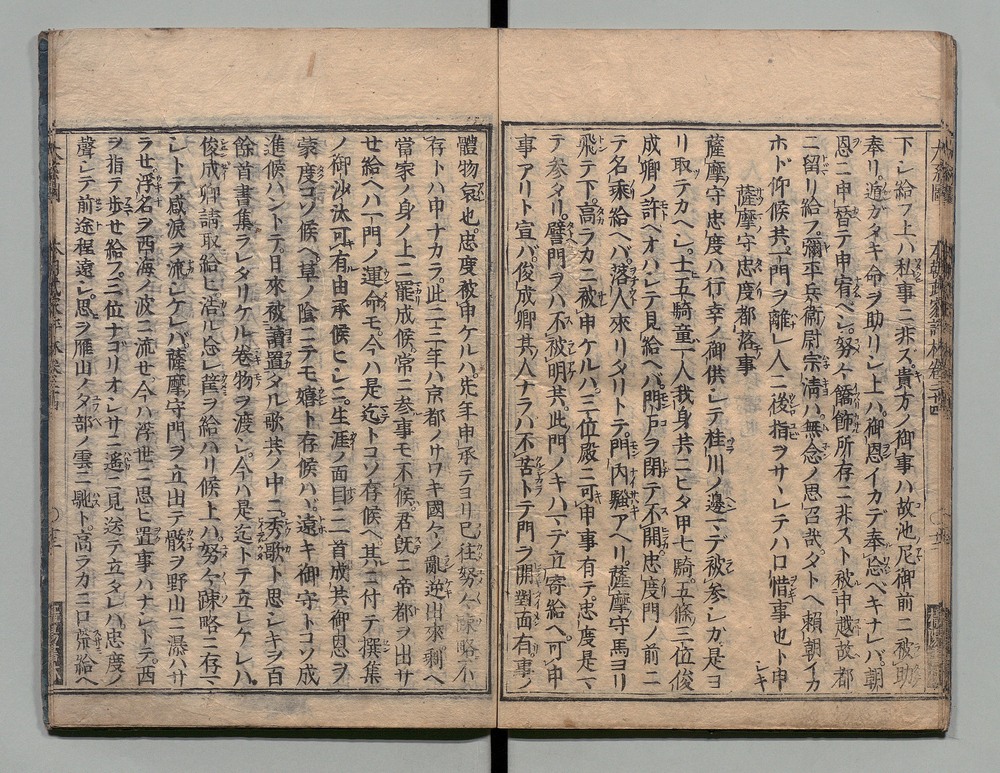 下シ給フ上ハ私事ニ非ズ貴方ノ御事ハ故池尼御前ニ被助
奉リ遁ガタキ命ヲ助リシ上ハ御恩イカデ奉忘ベキナレバ朝
恩ニ申皆テ申宥ベシ努々僞飾所存ニ非スト被申越故都
ニ留リ給フ彌平兵衛尉宗淸ハ無念ノ思召哉タトヘ賴朝イカ
ホド仰候共一門ヲ離レ人ニ後指ヲサヽレテハ口惜事也ト申シキ
薩摩守忠度都落事
薩摩守忠度ハ行幸ノ御供シテ桂川ノ邊マデ被參シガ是ヨ
リ取テカヘシ士五騎童一人我身共ニヒタ甲七騎五條三位俊
成卿ノ許ヘオハシテ見給ヘバ門戸ヲ閉テ不開忠度門ノ前ニ
テ名乘給ヘバ落人來リタリトテ門内騷アヘリ薩摩守馬ヨリ
飛テ下高ラカニ被申ケルハ三位殿ニ可申事有テ忠度是マ
テ参タリ譬門ヲハ不被明共此門ノキハマデ立寄給ヘ可申
事アリト宣バ俊成卿其人ナラハ不苦トテ門ヲ開對面有事ノ
體物哀也忠度被申ケルハ先年申承テヨリ已往努々疎略不
存トハ申ナカラ此二三年ハ京都ノサワキ國々ノ亂逆出來剩ヘ
當家ノ身ノ上ニ罷成候常ニ參事モ不候君既ニ帝都ヲ出サ
せ給ヘハ一門ノ運命モ今ハ是迄トコソ存候ヘ其ニ付テ撰集
ノ御沙汰可有由承候ヒシニ生涯ノ面目ニ一首成共御恩ヲ
蒙度コソ候ヘ草ノ陰ニテモ嬉ト存候ハヾ遠キ御守トコソ成
進候ハントテ日來被讀置タル歌共ノ中ニ秀歌ト思シキヲ百
餘首書集ラレタリケル卷物ヲ渡シ今ハ是迄トテ立レケレハ
俊成卿請取給ヒ活ル忘レ薩ヲ給ハリ候上ハ努々疎略ニ存マ
シトテ感淚ヲ流シケレバ薩摩守門ヲ立出テ骸ヲ野山ニ瀑ハサ
ラせ浮名ヲ西海ノ波ニ流せ今ハ浮世ニ思ヒ置事ハナシトテ西
ヲ指テ歩せ給フ三位ナゴリオシサニ遙ニ見送テ立タレハ忠度ノ
聲シテ前途程遠シ思ヲ雁山ノタ部ノ雲ニ馳ト高ラカニ口荒給ヘ